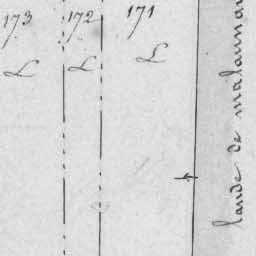 173
172
171
L
L
L
lande de malaunay